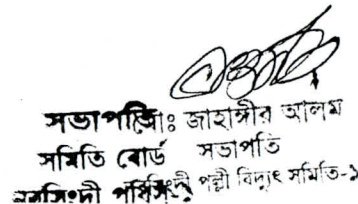 সভাপতি মোঃ জাহাঙ্গীর আলম
সমিতি বোর্ড সভাপতি
নরসিংদী পল্লী বিদ্যুৎ সমিতি-১